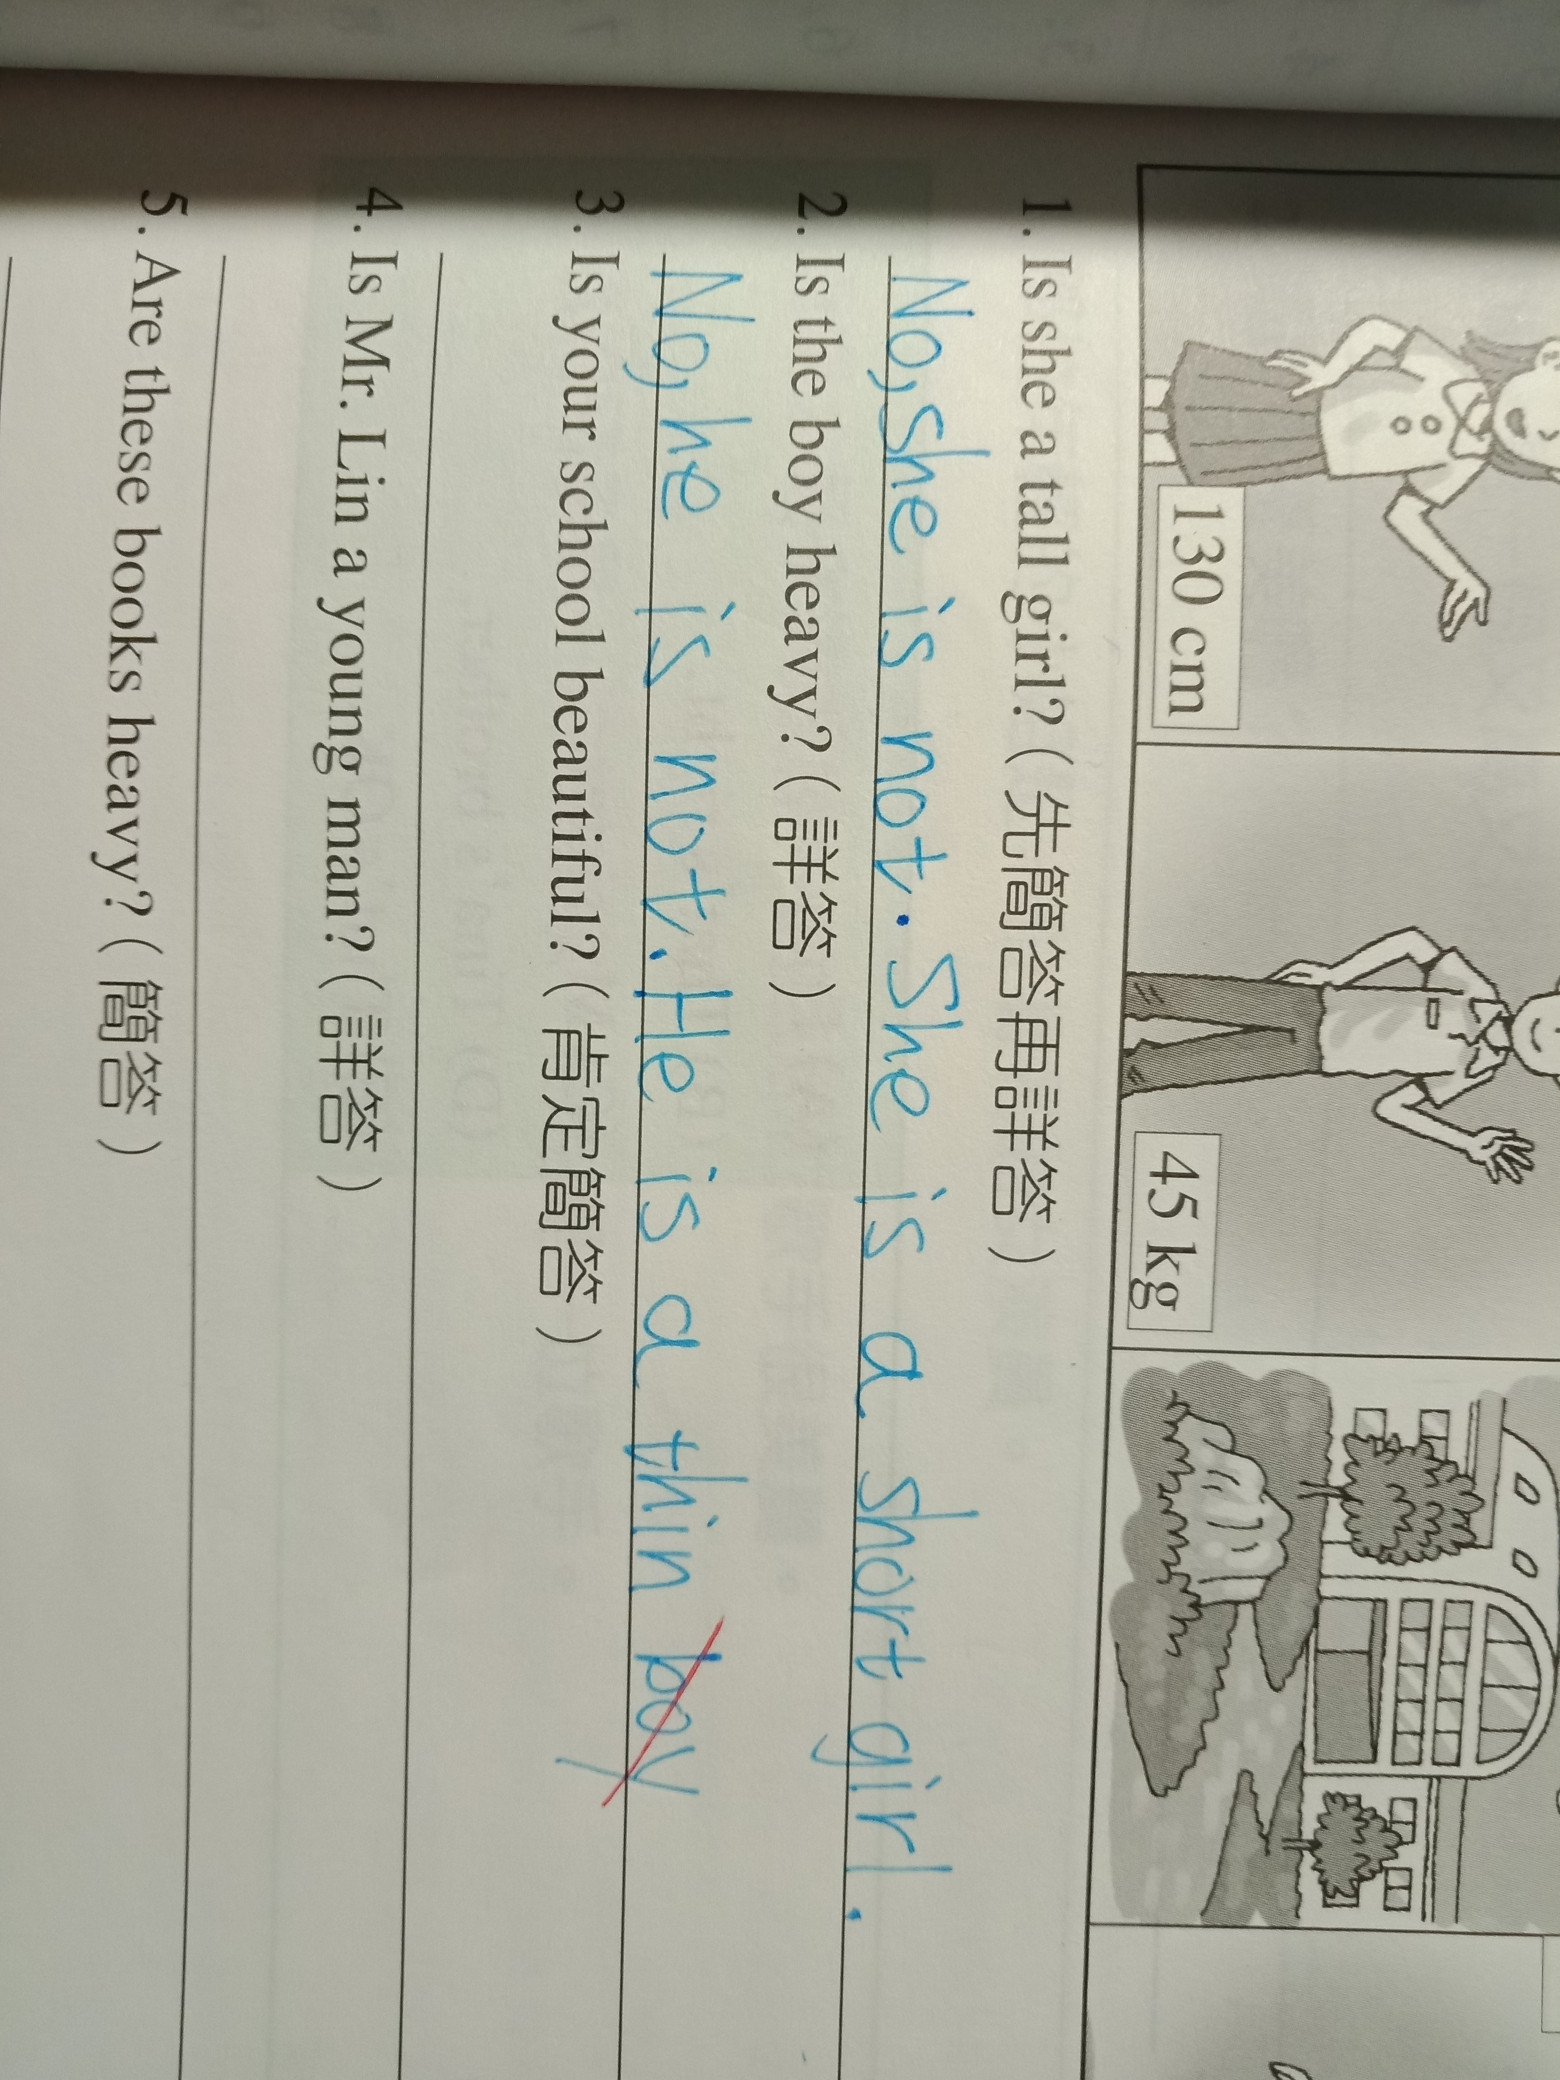 130 cm
45 kg
1. Is she a tall girl?(先簡答再詳答)
No, she is not. She is a short girl.
2. Is the boy heavy?(詳答)
No, he is not. He is a thin boy
3. Is your school beautiful?(肯定簡答)
4. Is Mr. Lin a young man?(詳答)
5. Are these books heavy?(簡答)